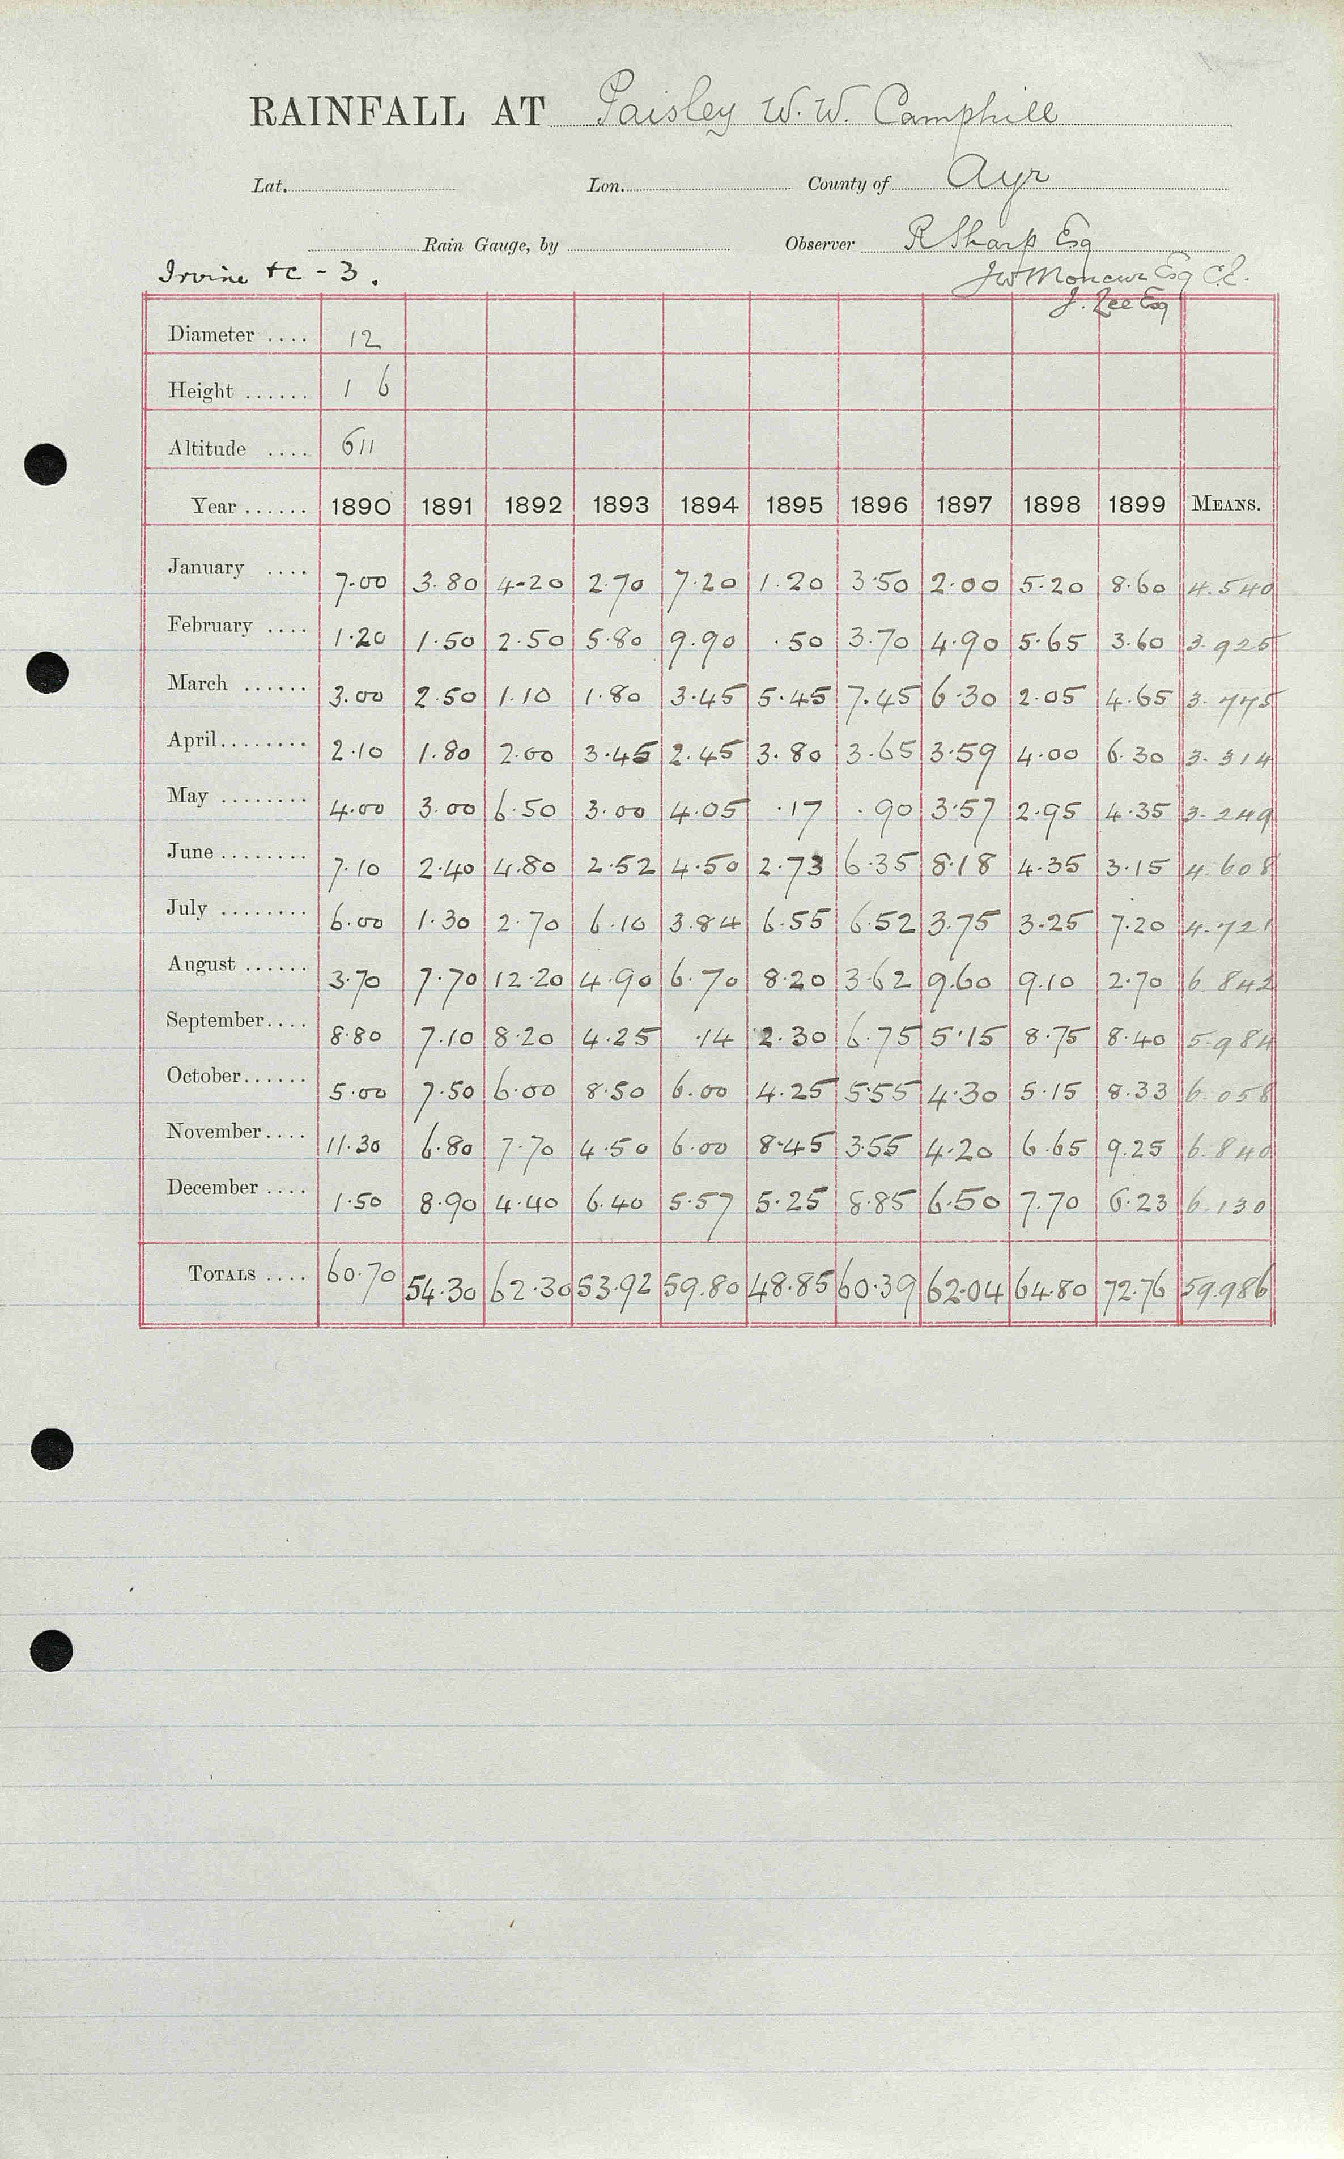 RAINFALL AT Paisley W.W. Camphill
Lat. Lon. County of Ayr
Rain Gauge, by Observer R Sharp Esq
Irvine &c - 3. Esq C.E.
J. Lee Esq
Diameter .... 12
Height ...... 1 6
Altitude .... 611
Year ...... 1890 1891 1892 1893 1894 1895 1896 1897 1898 1899 MEANS.
January .... 7.00 3.80 4.20 2.70 7.20 1.20 3.50 2.00 5.20 8.60 4.540
February .... 1.20 1.50 2.50 5.80 9.90 .50 3.70 4.90 5.65 3.60 3.925
March ...... 3.00 2.50 1.10 1.80 3.45 5.45 7.45 6.30 2.05 4.65 3.775
April........ 2.10 1.80 2.00 3.45 2.45 3.80 3.65 3.59 4.00 6.30 3.314
May ........ 4.00 3.00 6.50 3.00 4.05 .17 .90 3.57 2.95 4.35 3.249
June ........ 7.10 2.40 4.80 2.52 4.50 2.73 6.35 8.18 4.35 3.15 4.608
July ........ 6.00 1.30 2.70 6.10 3.84 6.55 6.52 3.75 3.25 7.20 4.721
August ...... 3.70 7.70 12.20 4.90 6.70 8.20 3.62 9.60 9.10 2.70 6.842
September.... 8.80 7.10 8.20 4.25 .14 2.30 6.75 5.15 8.75 8.40 5.984
October...... 5.00 7.50 6.00 8.50 6.00 4.25 5.55 4.30 5.15 8.33 6.058
November.... 11.30 6.80 7.70 4.50 6.00 8.45 3.55 4.20 6.65 9.25 6.840
December .... 1.50 8.90 4.40 6.40 5.57 5.25 8.85 6.50 7.70 6.23 6.130
TOTALS .... 60.70 54.30 62.30 53.92 59.80 48.85 60.39 62.04 64.80 72.76 59.986